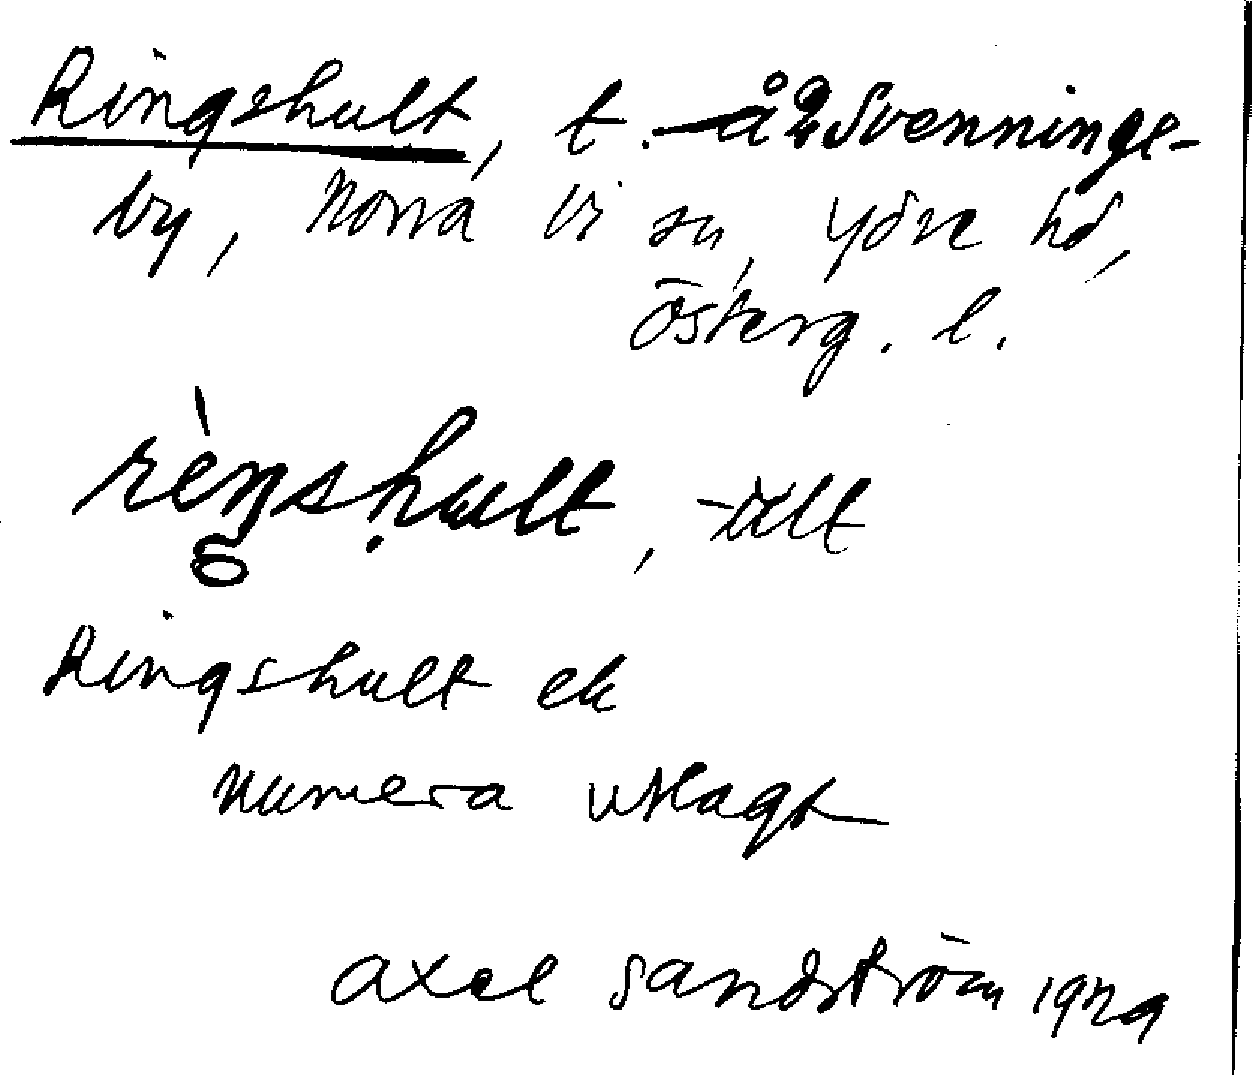 Ringshult, t. å Svenninge-
by, Norra Vi sn, Ydre hd,
Österg. l.
rèŋshult, -ult
Ringshult ek
numera utlagt
Axel Sandström 1929